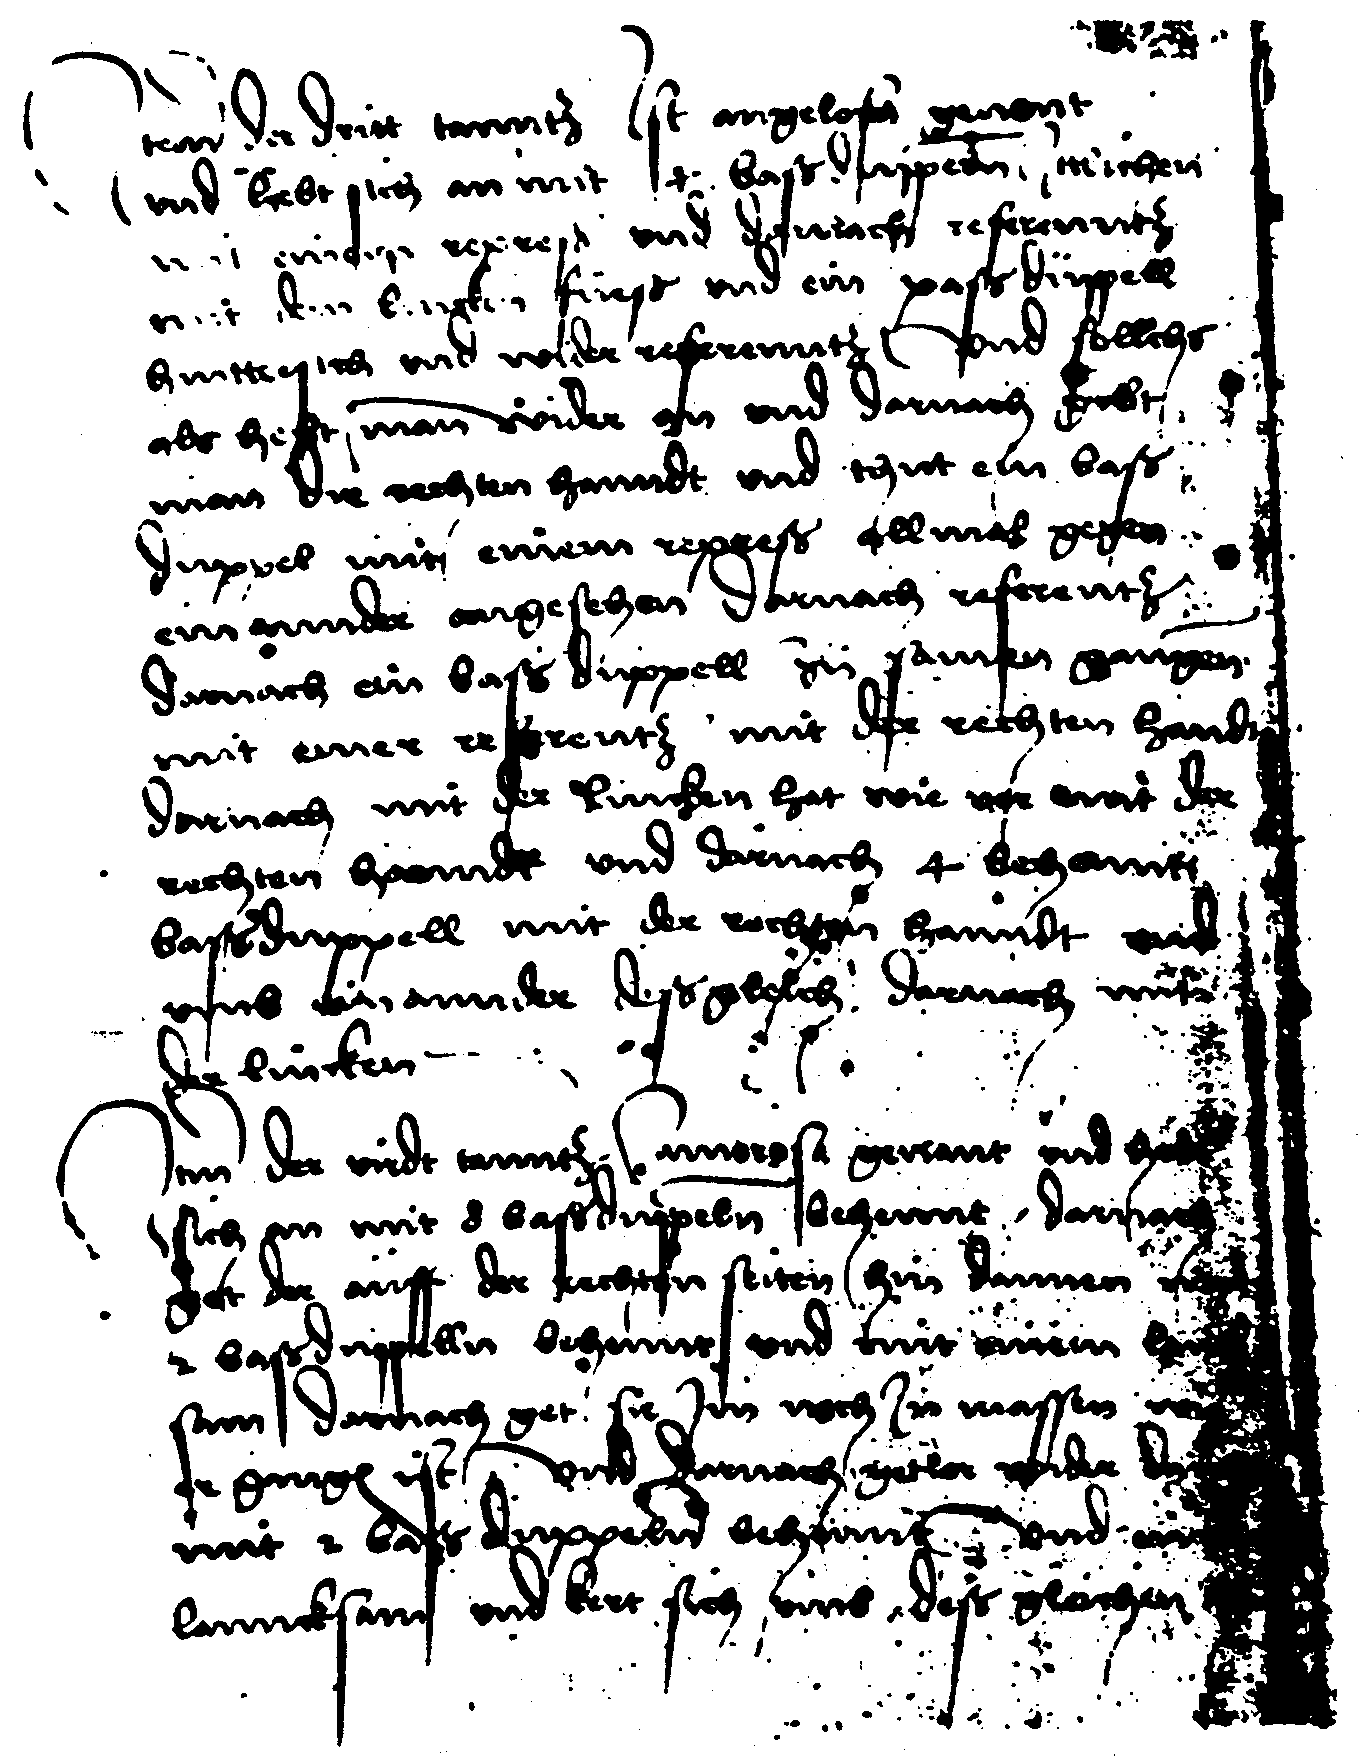 Item der dritt tanntz Ist angelosa genont
vnd hebt sich an mit 4 bass duppeln
mit einem repress vnd darnach referenntz
mit dem lingken fuess vnd ein pass düppell
hintter sich vnd wider referenntz vnd sollchs
als hebt man wider an vnd darnach gebt
man die rechten hanndt vnd thut ein bass
duppel mit einem repress allmal gegen
ein annder angesehen darnach referentz
darnach ein bass düppell zu samen gangen
mit einer referentz mit der rechten handt
darnach mit der lincken hat wie vor mit der
rechten hanndt vnd darnach 4 behennt
bassduppell mit der rechten hanndt vnd
vmb ein annder dessgleich darnach mit
der lincken
Itm der virdt tanntz amorosa gennant vnd hebt
sich an mit 8 bassduppeln behennt darnach
get der auff der rechten seiten hin dannen
2 bassduppelln behennt vnd mit einem lannck
sam darnach get sie Im noch In massen wie
er ganngen ist vnd darnach get er wider
mit 2 bass duppelnn behennt vnd ein
lanncksam vnd kert sich vmb dess gleichen